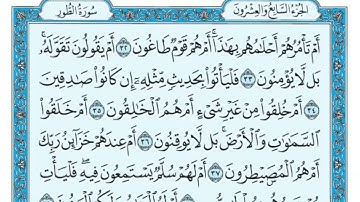 الجُزْءُ السَّابِعُ وَالعِشْرُونَ سُورَةُ الطُّورِ
أَمْ تَأْمُرُهُمْ أَحْلَٰمُهُم بِهَٰذَآ ۚ أَمْ هُمْ قَوْمٌ طَاغُونَ ٣٢ أَمْ يَقُولُونَ تَقَوَّلَهُۥ ۚ
بَل لَّا يُؤْمِنُونَ ٣٣ فَلْيَأْتُوا۟ بِحَدِيثٍ مِّثْلِهِۦٓ إِن كَانُوا۟ صَٰدِقِينَ
٣٤ أَمْ خُلِقُوا۟ مِنْ غَيْرِ شَىْءٍ أَمْ هُمُ ٱلْخَٰلِقُونَ ٣٥ أَمْ خَلَقُوا۟
ٱلسَّمَٰوَٰتِ وَٱلْأَرْضَ ۚ بَل لَّا يُوقِنُونَ ٣٦ أَمْ عِندَهُمْ خَزَآئِنُ رَبِّكَ
أَمْ هُمُ ٱلْمُصَۣيْطِرُونَ ٣٧ أَمْ لَهُمْ سُلَّمٌ يَسْتَمِعُونَ فِيهِ ۖ فَلْيَأْتِ